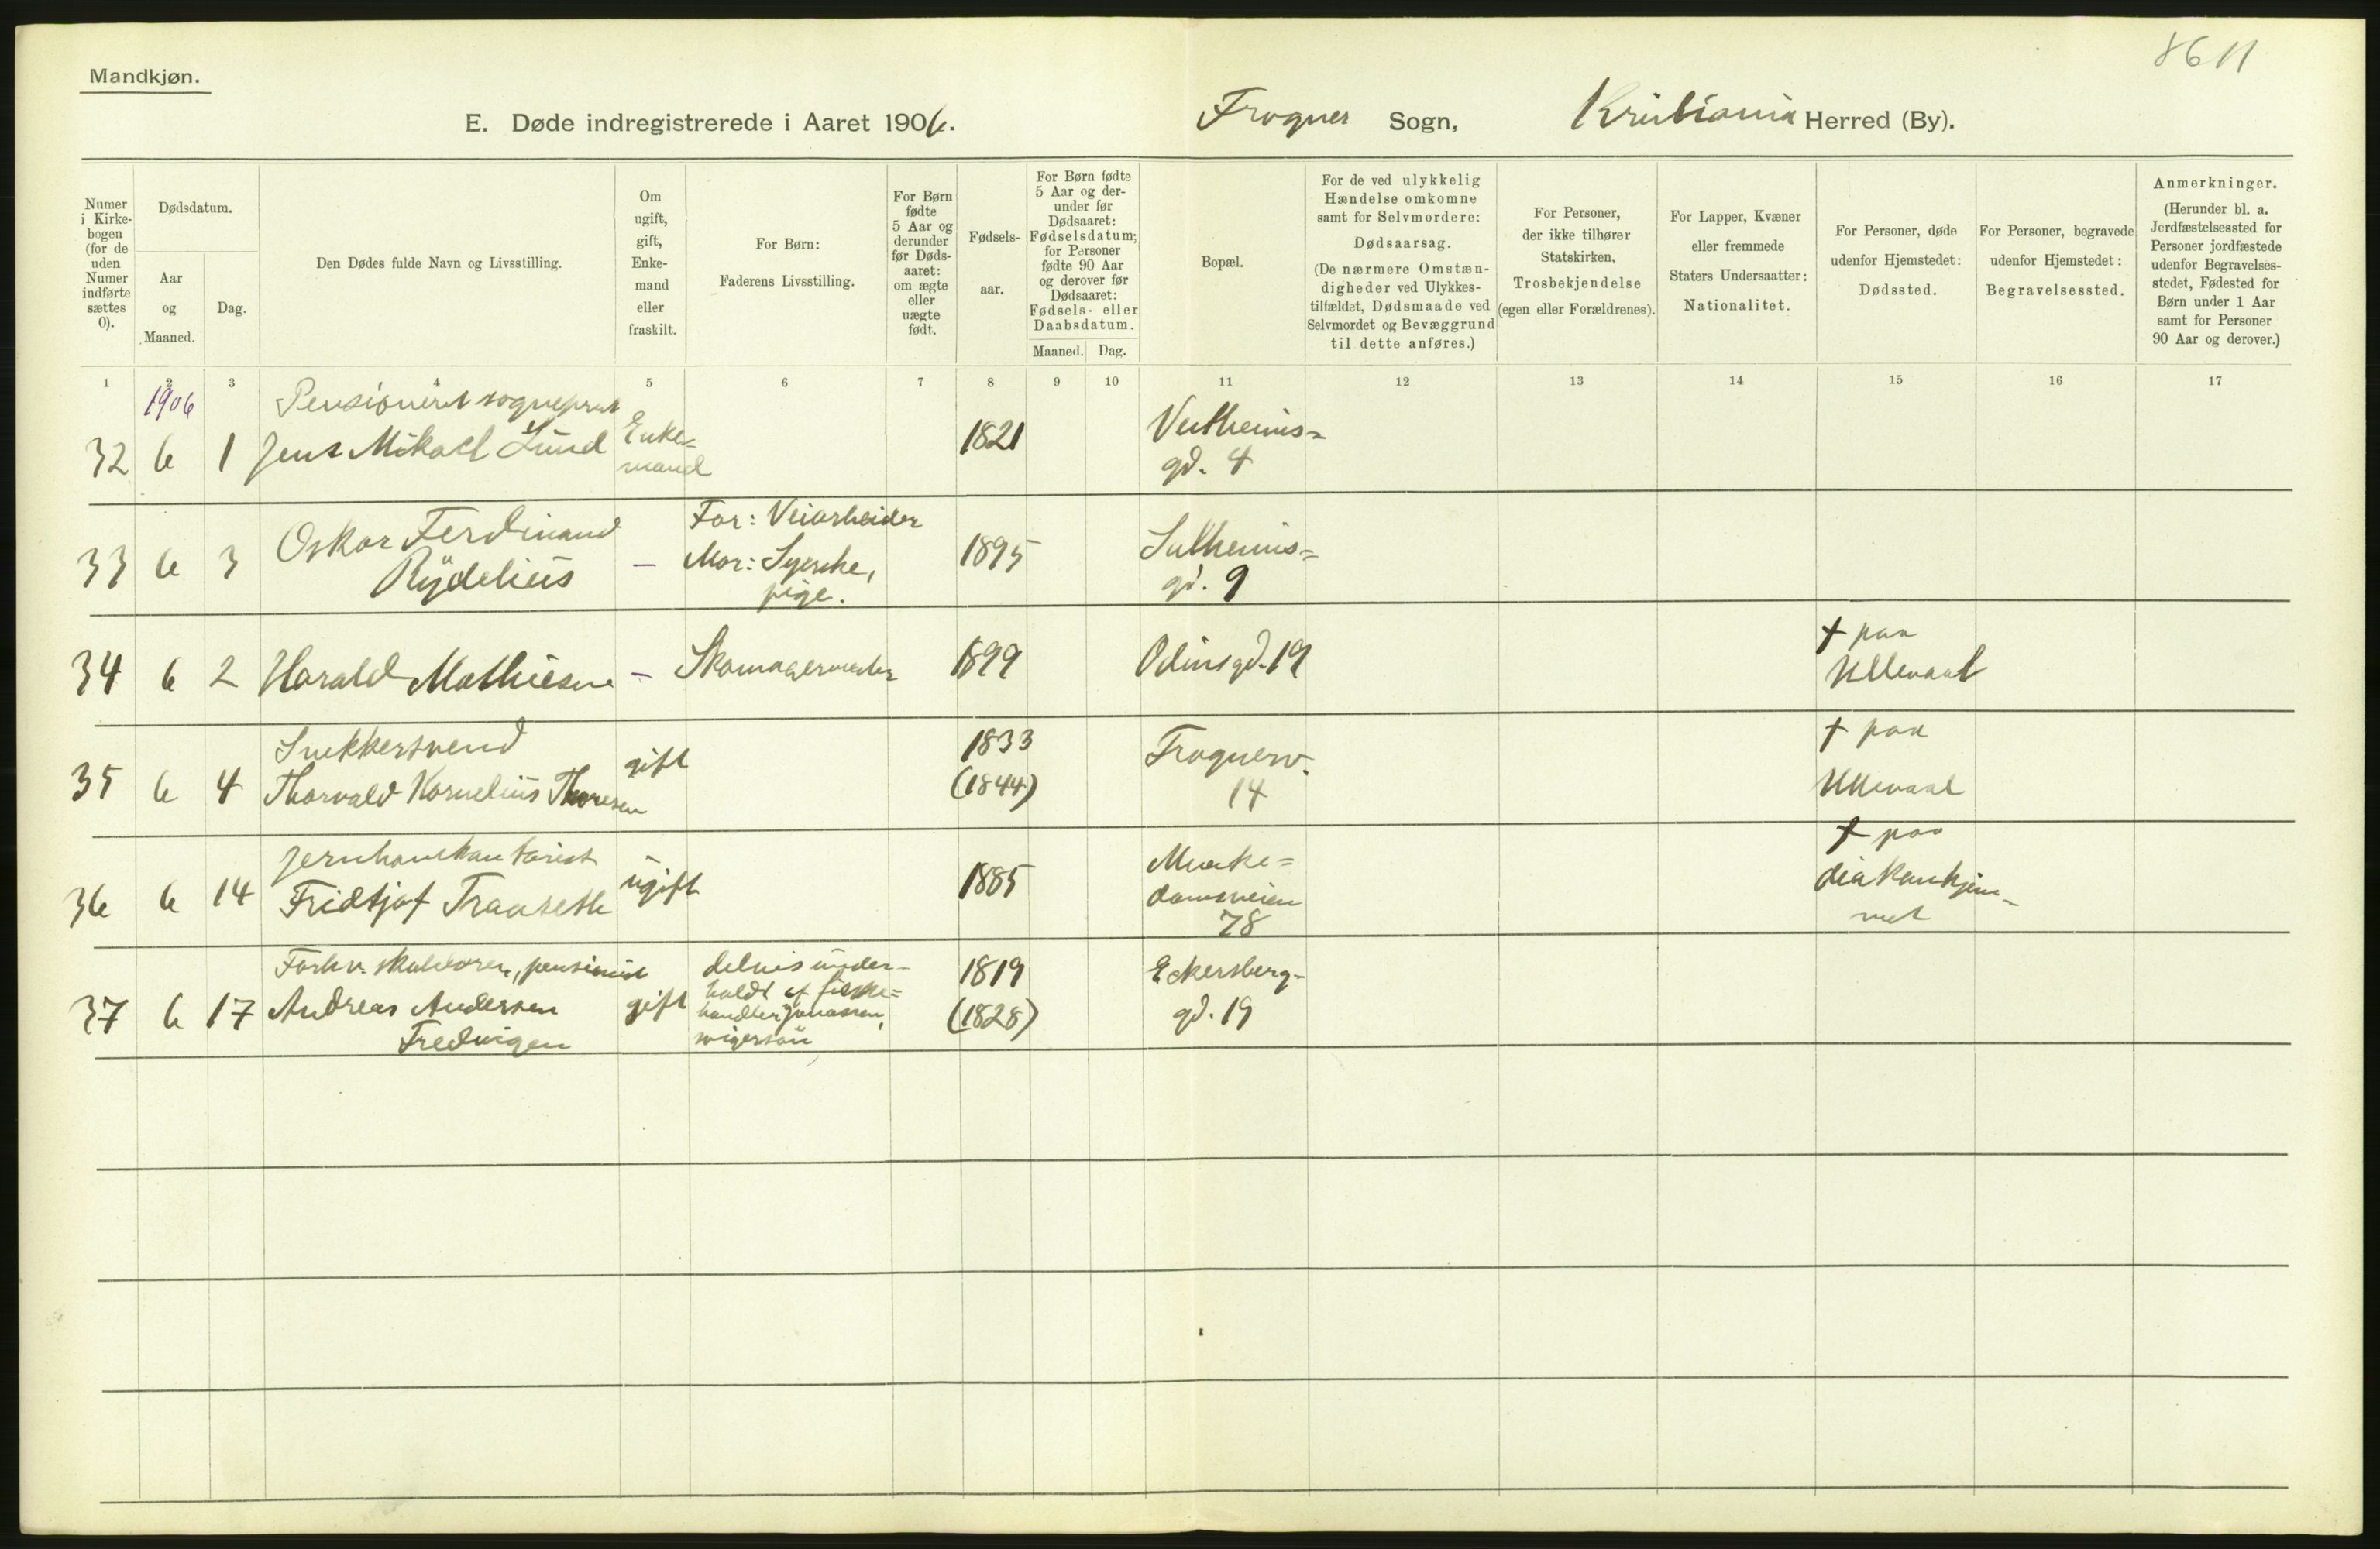 8611
Mandkjøn.
E. Døde indregistrerede i Aaret 1906.
Frogner Sogn,
Kristiania Herred (By).
Numer
i Kirke-
bogen
(for de
uden
Numer
indførte
sættes
0).
Dødsdatum.
Aar
og
Maaned.
Dag.
Den Dødes fulde Navn og Livsstilling.
Om
ugift,
gift,
Enke-
mand
eller
fraskilt.
For Børn:
Faderens Livsstilling.
For Børn
fødte
5 Aar og
derunder
før Døds-
aaret:
om ægte
eller
uægte
født.
Fødsels-
aar.
For Børn fødte
5 Aar og der-
under før
Dødsaaret:
Fødselsdatum;
for Personer
fødte 90 Aar
og derover før
Dødsaaret:
Fødsels- eller
Daabsdatum.
Maaned. Dag.
Bopæl.
For de ved ulykkelig
Hændelse omkomne
samt for Selvmordere:
Dødsaarsag.
(De nærmere Omstæn-
digheder ved Ulykkes-
tilfældet, Dødsmaade ved
Selvmordet og Bevæggrund
til dette anføres.)
For Personer,
der ikke tilhører
Statskirken,
Trosbekjendelse
(egen eller Forældrenes).
For Lapper, Kvæner
eller fremmede
Staters Undersaatter:
Nationalitet.
For Personer, døde
udenfor Hjemstedet:
Dødssted.
For Personer, begravede
udenfor Hjemstedet:
Begravelsessted.
Anmerkninger.
(Herunder bl. a.
Jordfæstelsessted for
Personer jordfæstede
udenfor Begravelses-
stedet, Fødested for
Børn under 1 Aar
samt for Personer
90 Aar og derover.)
1 2 3 4 5 6 7 8 9 10 11 12 13 14 15 16 17
1906
Pensioneret sogneprest
32 6 1 Jens Mikael Lund
Enke=
mand
1821
Vestheims=
gd. 4
33 6 3 Oskar Ferdinand
Rydelius
—
Far: Veiarbeider
Mor: Syerske,
pige.
1895
Sulheims=
gd. 9
34 6 2 Harald Mathiesen — Skomagermester 1899 Odinsgd. 19
† paa
Ullevaal
Snekkersvend
35 6 4 Thorvald Kornelius Thoresen
gift
1833
(1844)
Frognerv.
14
† paa
Ullevaal
Jernbanekontorist
36 6 14 Fridtjof Traaseth
ugift
1885
Munke=
damsveien
78
† paa
diakonhjem-
met
Forhv. pensionist
37 6 17 Andreas Andersen
Fredvigen
gift
delvis under-
holdt af fiske=
handler Jonassen,
svigersøn
1819
(1828)
Eckersberg-
gd. 19